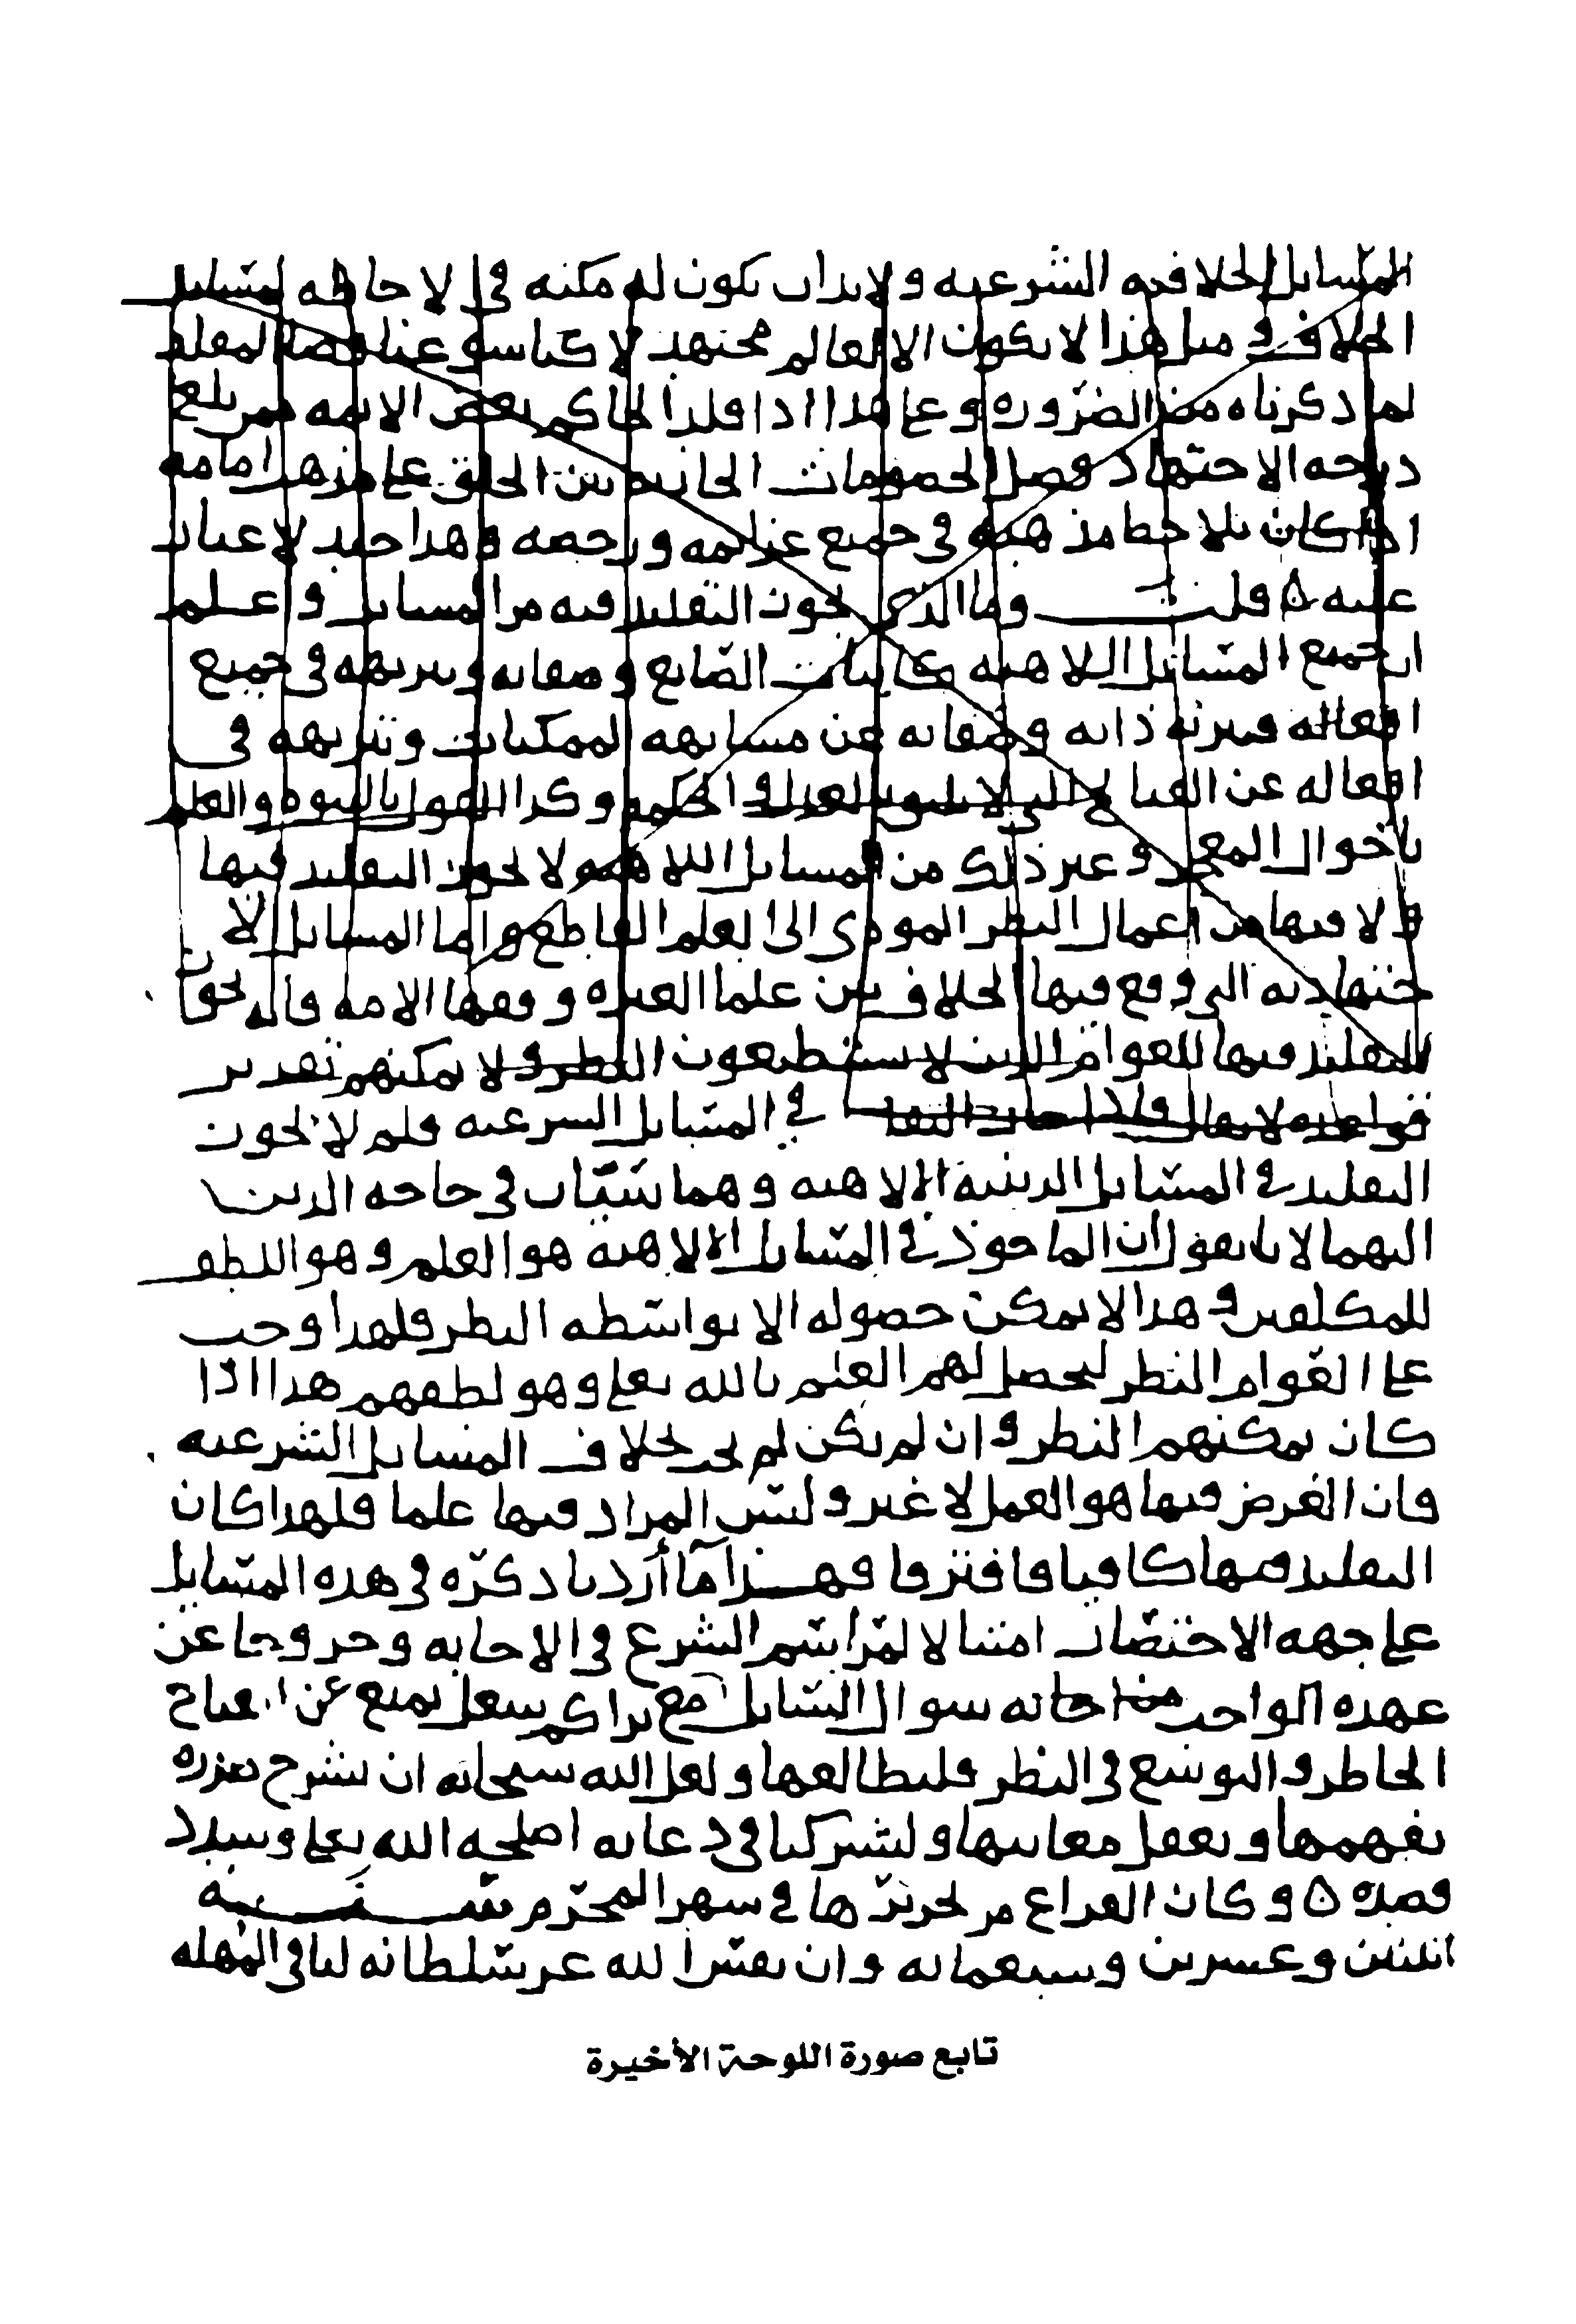 المسايل الخلافيه الشرعيه ولابدان يكون له مكنه في الاحاطه لمسايل
الخلاف و مثل هذا لا يكون الا لعالم مجتهد لا المقلد
لما ذكرناه من الضروره وعلى هذا اذا قلد الحاكم بعض الايمه ممن بلغ
درجه الاجتهاد وفصل الخصومات بين الخلق على مذهب امامه
اذا كان يلاحظ مذهبه في جميع عزايمه ورخصه وهذا جيد لا غبار
عليه ۞ قلت وما الذي يجوز التقليد فيه من المسايل واعلم
ان جميع المسايل الالاهيه كاثبات الصانع وصفاته وتنزيهه في جميع
افعاله ذاته وصفاته عن مشابهه الممكنات وتنزيهه في
افعاله عن القبايح التي لا تليق بالعدل والحكمه وكذا القول بالنبوه والعلم
باحوال المعاد وغير ذلك من المسايل الالاهيه لا يجوز التقليد فيها
ولا فيها من اعمال النظر المودي الى العلم القاطع واما المسايل الا
جتهاديه التي وقع فيها الخلاف بين علما العتره وفقها الامه فانه يجوز
التقليد فيها للعوام الذين لا يستطيعون النظر ولا يمكنهم تقدير
قواعده لا يقال فاذا جاز التقليد في المسايل الشرعيه فلم لا يجوز
التقليد في المسايل الدينية الالاهيه وهما سيّان في حاجه الدين
اليهما لانا نقول ان الماخوذ في المسايل الالاهيه هو العلم وهو اللطف
للمكلفين وهذا لا يمكن حصوله الا بواسطه النظر فلهذا وجب
على العوام النظر ليحصل لهم العلم بالله تعلى وهو لطفهم هذا اذا
كان يمكنهم النظر وان لم يكن لم يجز بخلاف المسايل الشرعيه
فان الغرض فيها هو العمل لا غير وليس المراد فيها علما فلهذا كان
التقليد فيها كافيا فافترقا فهذا ما أردنا ذكره في هذه المسايل
على جهه الاختصار امتثالا لمراسم الشرع في الاجابه وخروجا عن
عهده الواجب من اجابه سوال السايل مع تراكم شغل يمنع عن انفتاح
الخاطر والتوسع في النظر فليطالعها ولعل الله سبحانه ان يشرح صدره
بفهمها وتعقل معانيها وليشركنا في دعايه اصلحه الله تعلى وسدد
قصده ۞ وكان الفراغ من تحريرها في شهر المحرّم سنة
اثنتين وعشرين وسبعمايه وان يفسّر الله عز سلطانه لنا في المهله
تابع صورة اللوحة الأخيرة